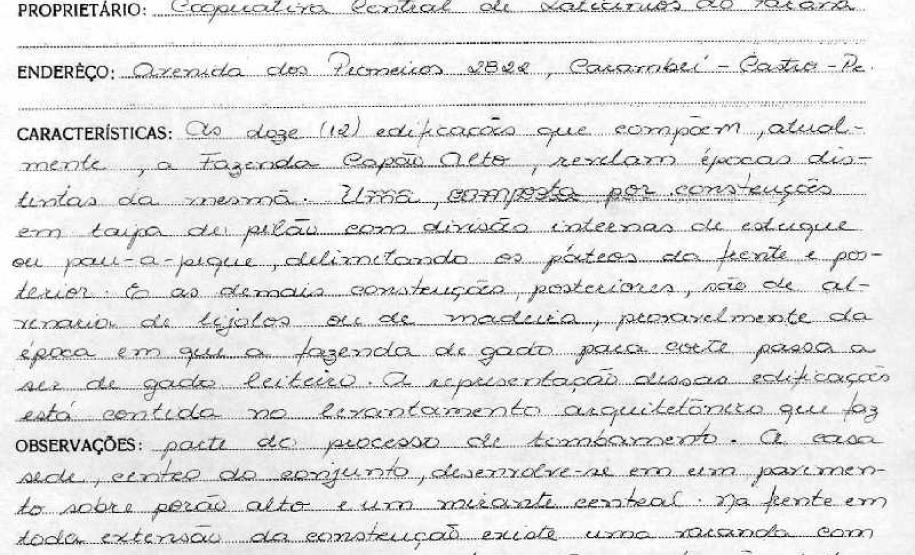 PROPRIETÁRIO: Cooperativa Central de Laticínios do Paraná
ENDERÊÇO: Avenida dos Pioneiros 2822, Carambeí - Castro - Pr.
CARACTERÍSTICAS: As doze (12) edificações que compõem, atual-
mente, a Fazenda Capão Alto, revelam épocas dis-
tintas da mesma. Uma, composta por construções
em taipa de pilão com divisão internas de estuque
ou pau-a-pique, delimitando os páteos da frente e pos-
terior. E as demais construções, posteriores, são de al-
venaria de tijolos ou de madeira, provavelmente da
época em que a fazenda de gado para corte passa a
ser de gado leiteiro. A representação dessas edificações
está contida no levantamento arquitetônico que faz
OBSERVAÇÕES: parte do processo de tombamento. A casa
sede, centro do conjunto, desenvolve-se em um pavimen-
to sobre porão alto e um mirante central. Na frente em
toda extensão da construção existe uma varanda com